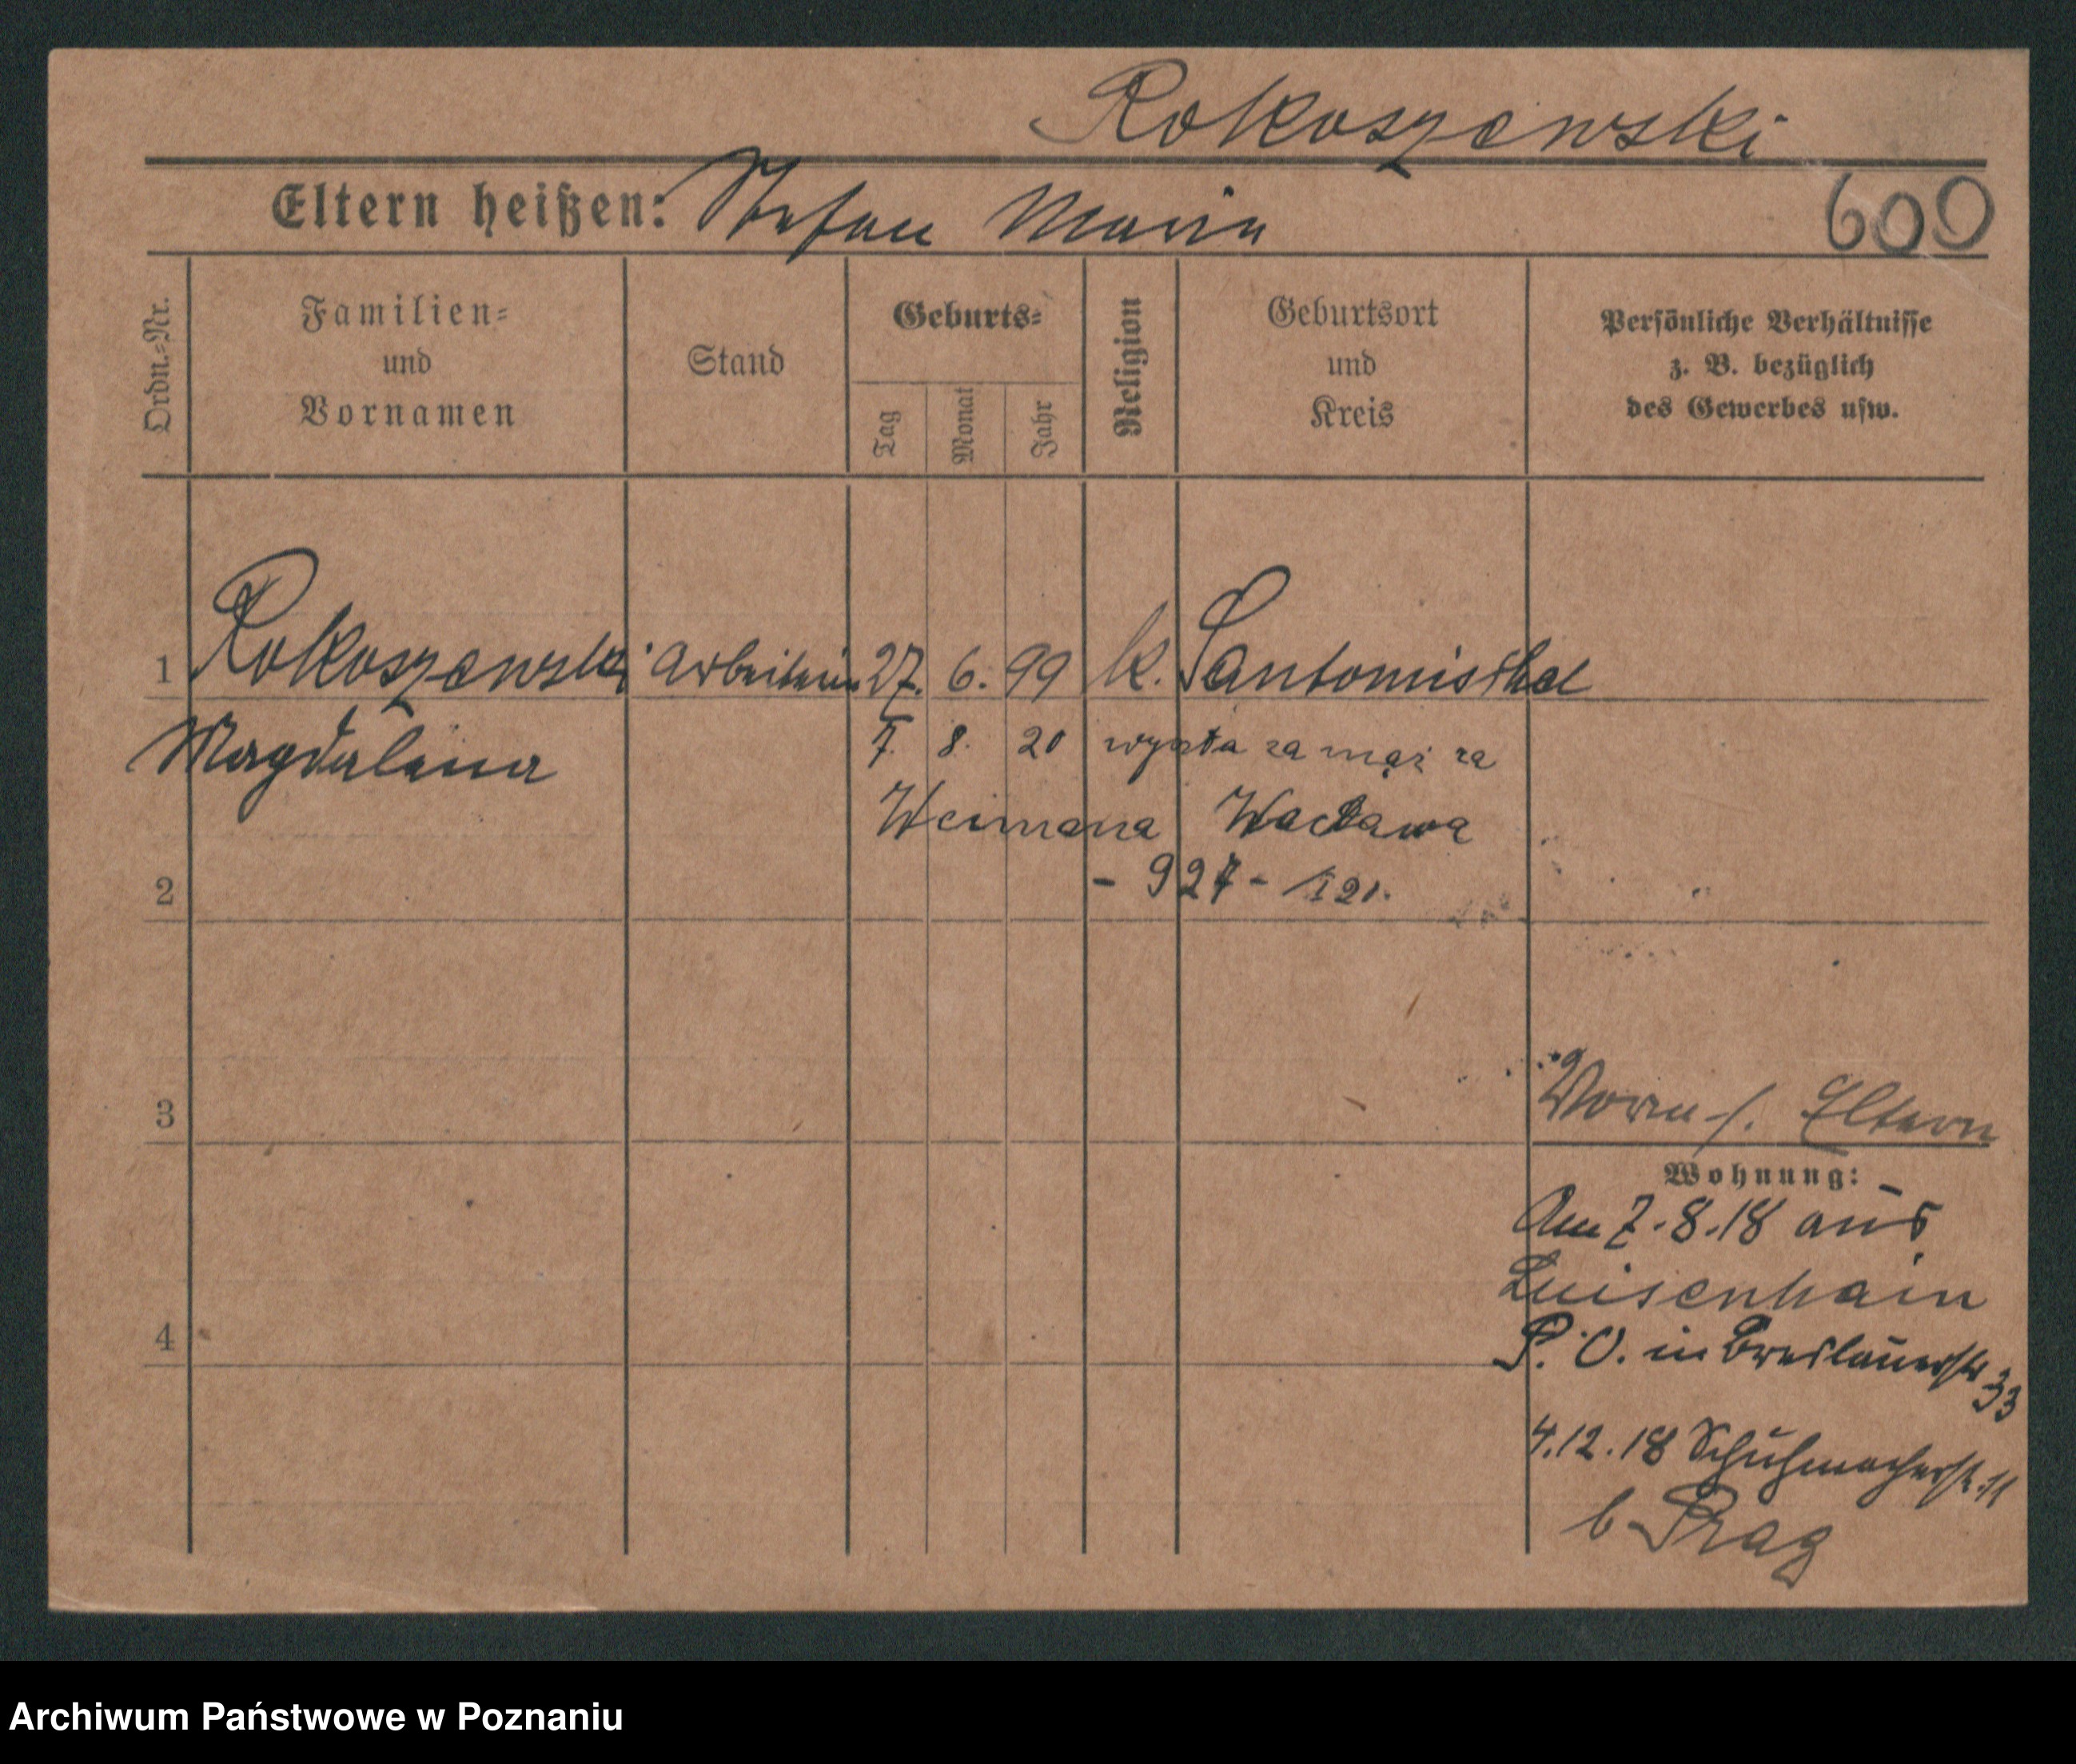 Rokoszewski
Eltern heißen: Stefan Maria
600
Ordn.=Nr.
Familien=
und
Vornamen
Stand
Geburts=
Tag
Monat
Jahr
Religion
Geburtsort
und
Kreis
Persönliche Verhältnisse
z. B. bezüglich
des Gewerbes usw.
1 Rokoszewski Arbeiterin 27. 6. 99 k. Santomischel
Magdalena 7. 8. 20 wyszła za mąż za
Weimana Wacława
2 - 927 - 120.
3
Eltern
Wohnung:
Am 7.8.18 aus
Luisenhain
4 P. O. in Breslauerstr 33
4.12.18 Schuhmacherstr. 11
b. Prag
Archiwum Państwowe w Poznaniu